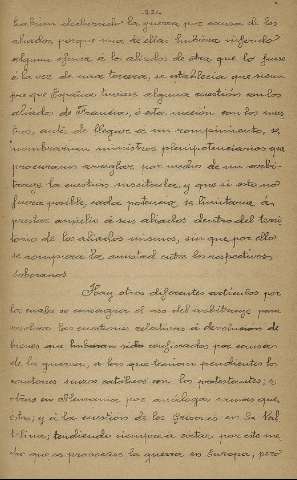 habian declarado la guerra por causa de los
aliados, porque una de ellas hubiera inferido
alguna ofensa á la aliada de otra que lo fuese
á la vez de una tercera, se establecia que siem
pre que España tuviera alguna cuestión con los
aliados de Francia, ó esta nación con los nues
tros, antes de llegar á un rompimiento, se
nombrarian ministros plenipotenciarios que
procurasen arreglar por medio de un arbi-
traje la cuestion suscitada, y que si esto no
fuera posible, cada potencia se limitaria á
prestar auxilio á sus aliados dentro del terri
torio de los aliados mismos, sin que por ello
se rompiera la amistad entre los respectivos
soberanos.
Hay otros diferentes artículos por
los cuales se consagraba el uso del arbitraje para
resolver las cuestiones relativas á devolucion de
bienes que hubieran sido confiscados por causas
de la guerra, á las que tenian pendientes los
cantones suizos católicos con los protestantes; á
otras en Alemania por análogas causas que
esta; y á la cuestion de los Grisones en la Val
telina; tendiendo siempre á evitar por este me
dio que se provocase la guerra en Europa, pero